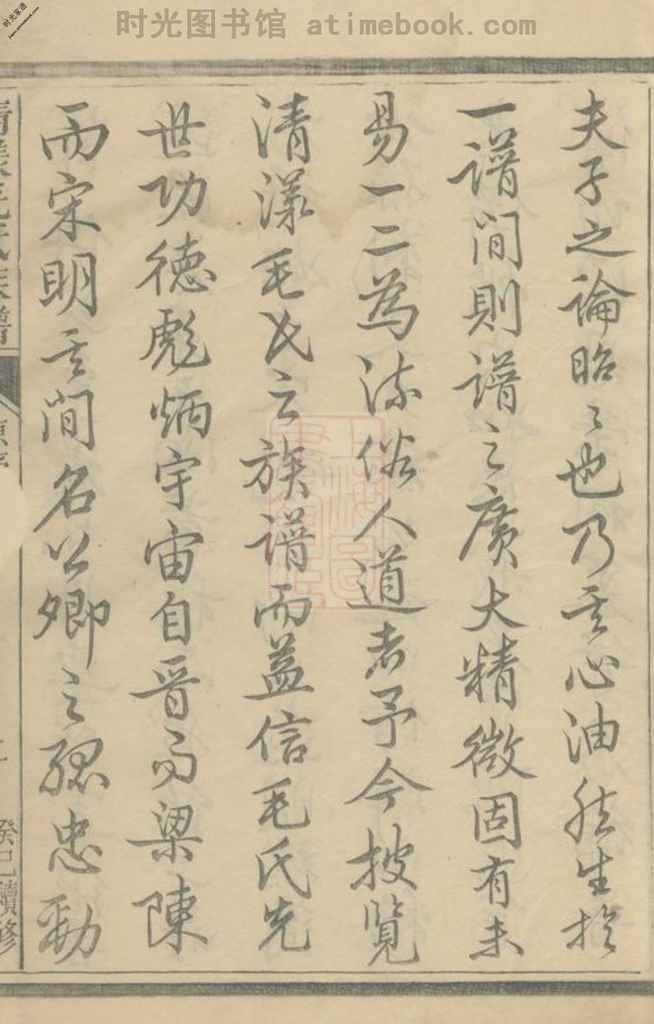 时光图书馆 atimebook.com
夫子之論昭〻也乃其心油然生於
一譜間則譜之廣大精微固有未
易一二為流俗人道者予今披覽
清漾毛氏之族譜而益信毛氏先
世功德彪炳宇宙自晉而梁陳
而宋明其間名公卿之孤忠勁
清漾毛氏族譜
癸巳續修